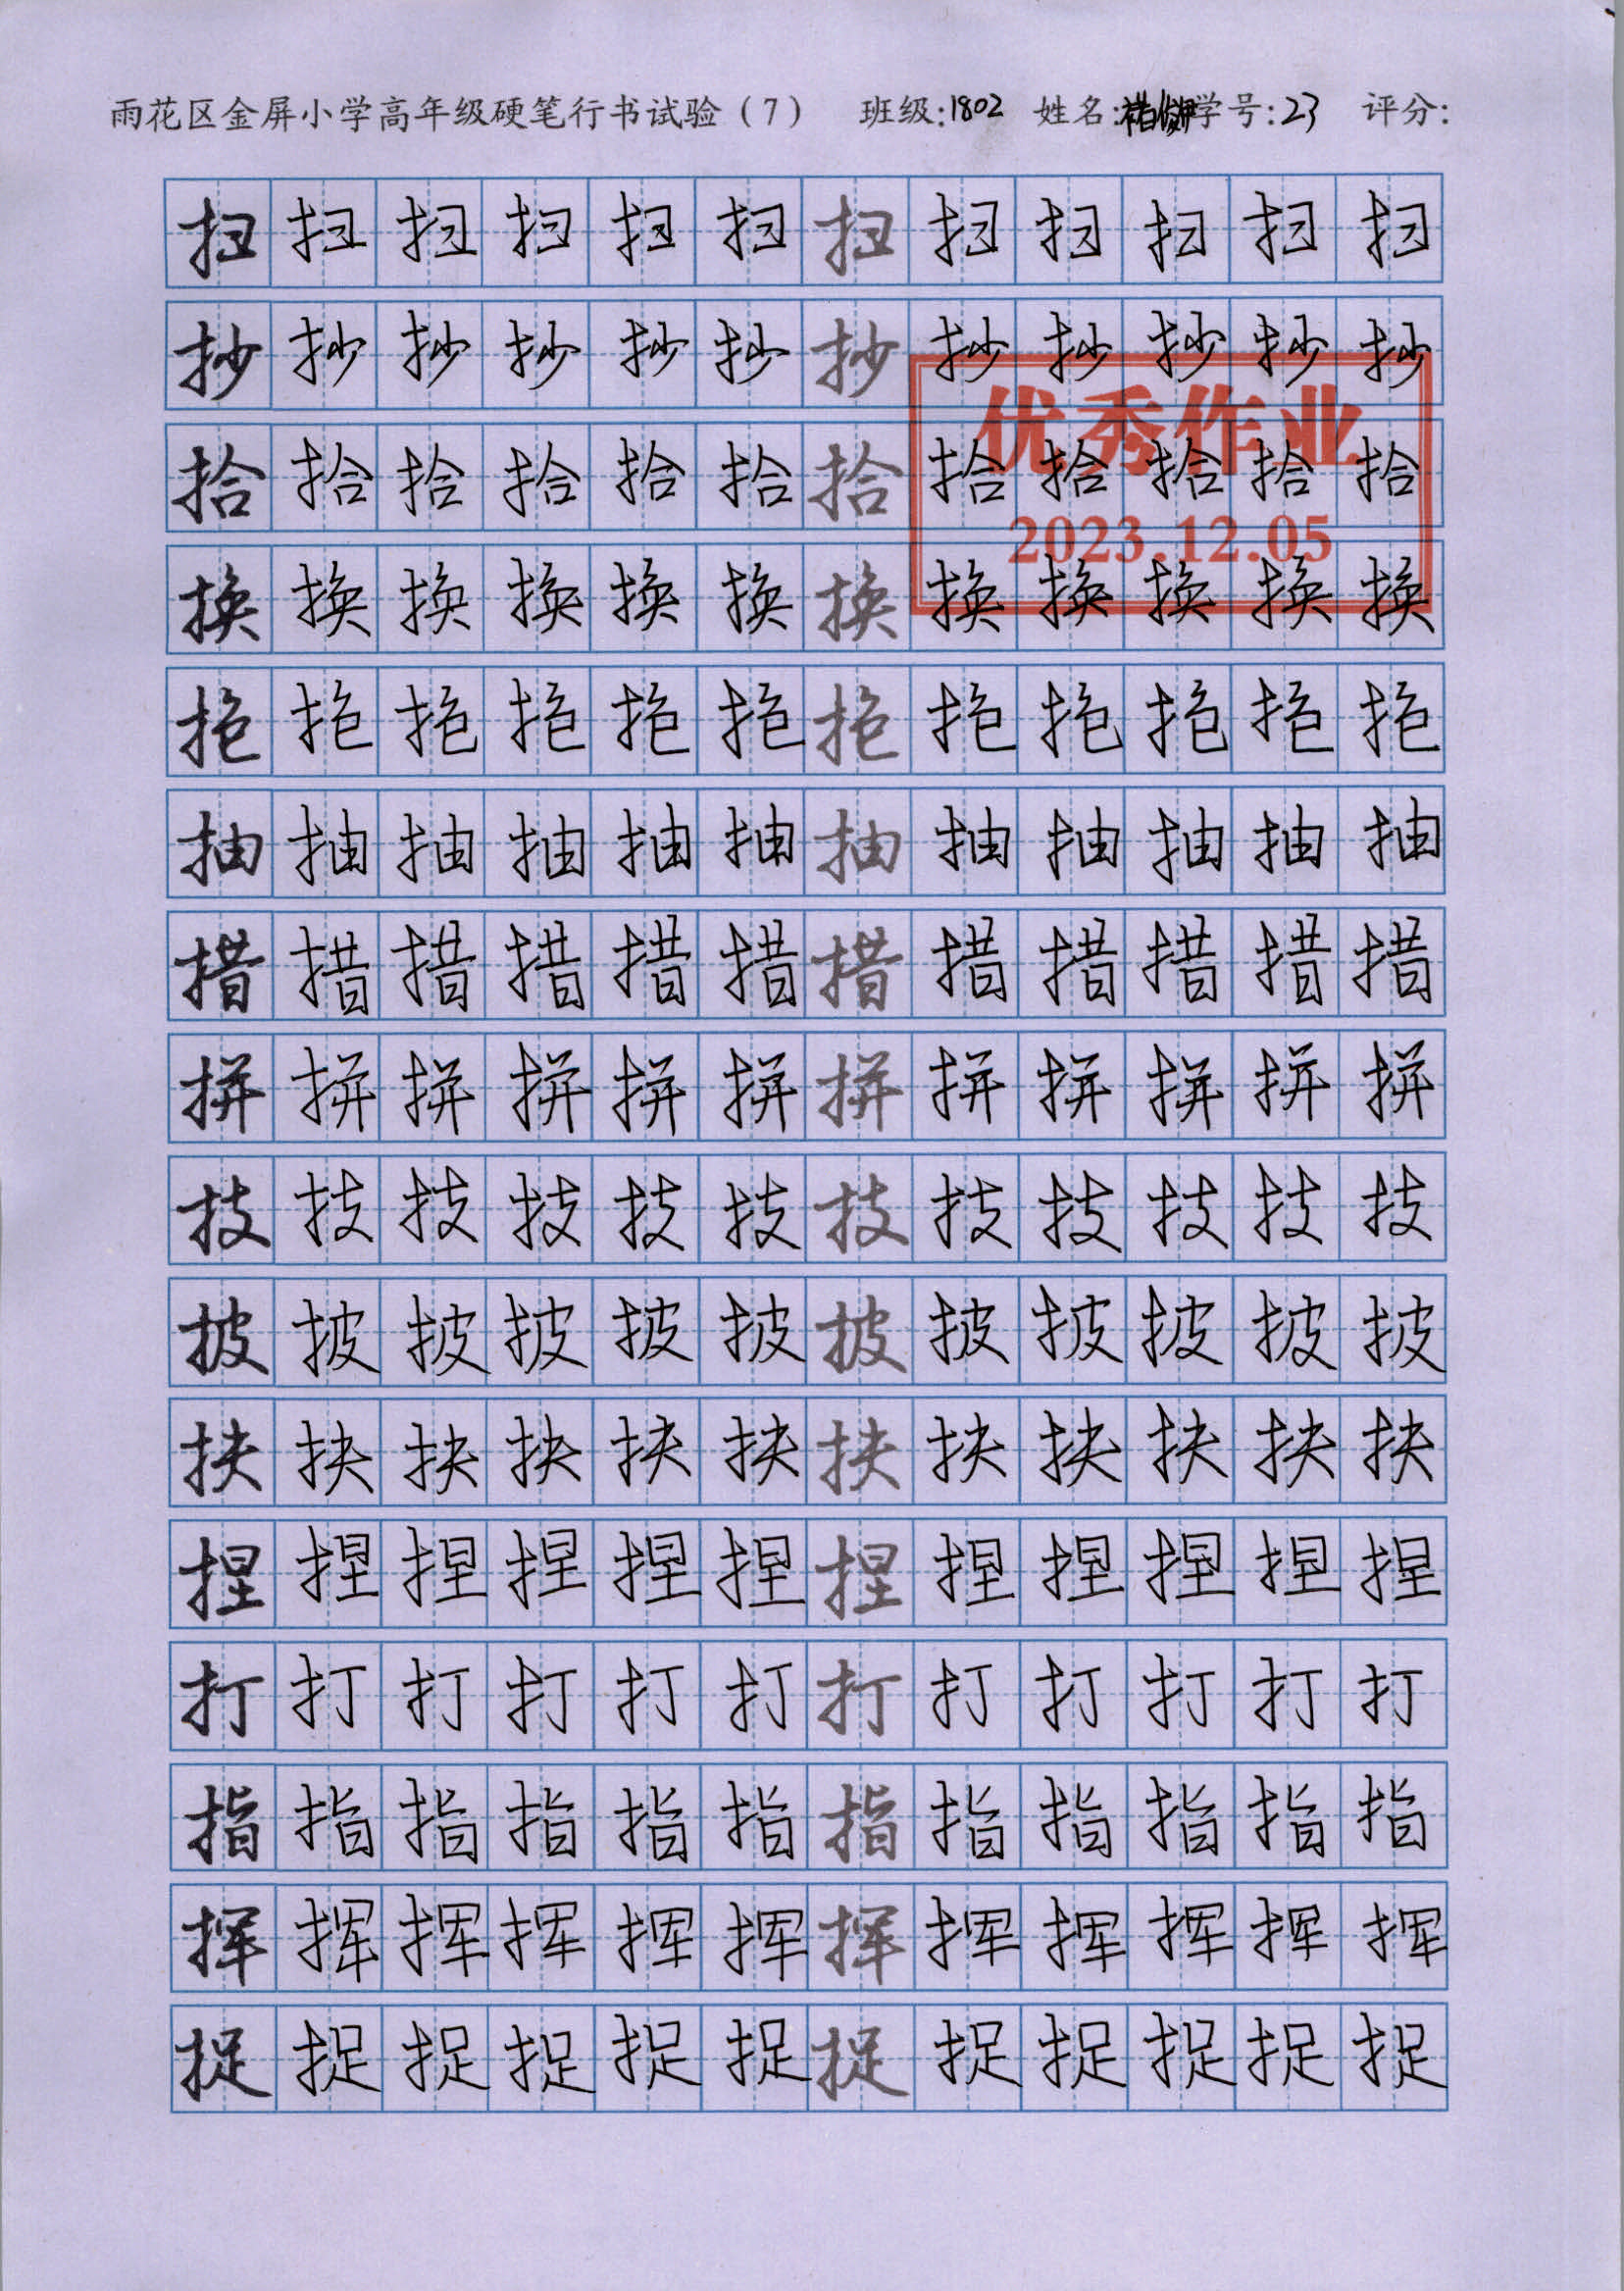 雨花区金屏小学高年级硬笔行书试验（7） 班级:1802 姓名: 学号:23 评分:
扫扫扫扫扫扫扫扫扫扫扫扫
抄抄抄抄抄抄抄抄抄抄抄抄
优秀作业
拾拾拾拾拾拾拾拾拾拾拾拾
2023.12.05
换换换换换换换换换换换换
抱抱抱抱抱抱抱抱抱抱抱抱
抽抽抽抽抽抽抽抽抽抽抽抽
措措措措措措措措措措措措
拼拼拼拼拼拼拼拼拼拼拼拼
技技技技技技技技技技技技
披披披披披披披披披披披披
扶扶扶扶扶扶扶扶扶扶扶扶
捏捏捏捏捏捏捏捏捏捏捏捏
打打打打打打打打打打打打
指指指指指指指指指指指指
挥挥挥挥挥挥挥挥挥挥挥挥
捉捉捉捉捉捉捉捉捉捉捉捉